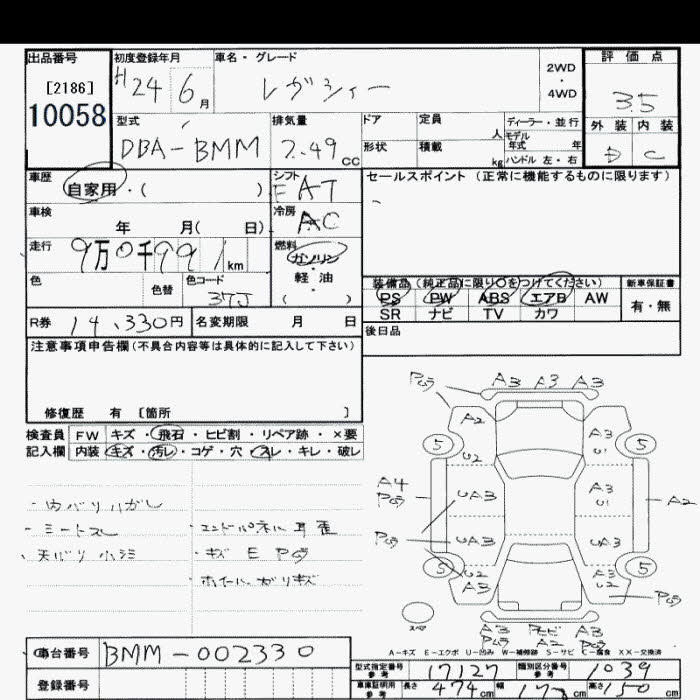 出品番号 初度登録年月 車名・グレード 評価点
[2186] H24 6月 レガシィー 2WD・4WD 3.5
10058
型式 排気量 ドア 定員 人 ディーラー・並行 外装 内装
DBA-BMM 2.49cc 形状 積載 kg モデル年式 年 ハンドル 左・右 D C
車歴 自家用・( ) シフト FAT セールスポイント (正常に機能するものに限ります)
車検 年 月( 日) 冷房 AC
走行 9万0千991km 燃料 ガソリン・軽油( )
色 色替 色コード 37J
装備品 (純正品に限り○をつけてください) 新車保証書
PS PW ABS エアB AW 有・無
SR ナビ TV カワ
R券 14,330円 名変期限 月 日 後日品
注意事項申告欄 (不具合内容等は具体的に記入して下さい)
修復歴 有 [箇所 ]
検査員 FW キズ・飛石・ヒビ割・リペア跡・×要
記入欄 内装 キズ・汚レ・コゲ・穴・スレ・キレ・破レ
・内バリハガレ
・シートスレ ・エンドパネル耳歪
・天バリ小シミ ・キズ E Pろう
・ホイールガリキズ
Pろう A3 A3 A3
A2 A3
5 5
U2 U1
A4 UA3 A3 A2
Pろう U1
Pろう UA3 UA3
5 U2 A3 5
A3 U2 Pろう
スペア
A3 A3
Pろう A2 Pろう
A-キズ E-エクボ U-凹み W-補修跡 S-サビ C-腐食 XX-交換済
車台番号 BMM-002330
登録番号
型式指定番号 参考 17127 類別区分番号 参考 1039
車庫証明用 参考 長さ 474cm 幅 178cm 高さ cm